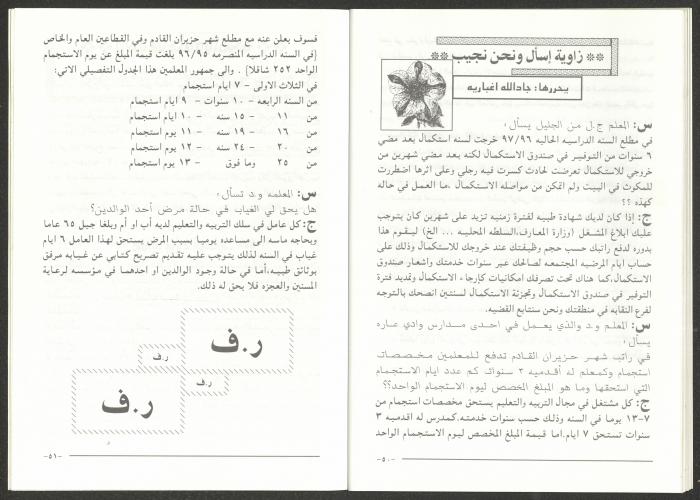 ** زاوية إسأل ونحن نجيب **
يحررها: جادالله اغباريه
س: المعلم ج.ل من الجليل يسأل،
في مطلع السنه الدراسيه الحاليه ٩٧/٩٦ خرجت لسنه استكمال بعد مضي
٦ سنوات من التوفير في صندوق الاستكمال لكنه بعد مضي شهرين من
خروجي للاستكمال تعرضت لحادث كسرت فيه رجلي وعلى اثرها اضطررت
للمكوث في البيت ولم اتمكن من مواصله الاستكمال .ما العمل في حاله
كهذه ؟؟
ج: إذا كان لديك شهادة طبيه لفترة زمنيه تزيد على شهرين كان يتوجب
عليك ابلاغ المشغل (وزارة المعارف،السلطه المحليه ... الخ) ليقوم هذا
بدوره لدفع راتبك حسب حجم وظيفتك عند خروجك للاستكمال وذلك على
حساب ايام المرضيه المجتمعه لصالحك عبر سنوات خدمتك واشعار صندوق
الاستكمال،كما هناك تحت تصرفك امكانيات كإرجاء الاستكمال وتمديد فترة
التوفير في صندوق الاستكمال وتجزئة الاستكمال لسنتين انصحك بالتوجه
لفرع النقابه في منطقتك ونحن سنتابع القضيه.
س: المعلم و.د والذي يعمل في احدى مدارس وادي عاره
يسأل،
في راتب شهر حزيران القادم تدفع للمعلمين مخصصات
استجمام وكمعلم له أقدميه ٣ سنوات كم عدد ايام الاستجمام
التي استحقها وما هو المبلغ المخصص ليوم الاستجمام الواحد؟؟
ج: كل مشتغل في مجال التربيه والتعليم يستحق مخصصات استجمام من
٧-١٣ يوما في السنه وذلك حسب سنوات خدمته.كمدرس له اقدميه ٣
سنوات تستحق ٧ ايام.اما قيمة المبلغ المخصص ليوم الاستجمام الواحد
-٥٠-
فسوف يعلن عنه مع مطلع شهر حزيران القادم وفي القطاعين العام والخاص
(في السنه الدراسيه المنصرمه ٩٦/٩٥ بلغت قيمة المبلغ عن يوم الاستجمام
الواحد ٢٥٢ شاقلا) . والى جمهور المعلمين هذا الجدول التفصيلي الاتي:
في الثلاث الاولى - ٧ ايام استجمام
من السنه الرابعه - ١٠ سنوات - ٩ ايام استجمام
من ١١ - ١٥ سنه - ١٠ ايام استجمام
من ١٦ - ١٩ سنه - ١١ يوم استجمام
من ٢٠ - ٢٤ سنه - ١٢ يوم استجمام
من ٢٥ وما فوق - ١٣ يوم استجمام
س: المعلمه و.د تسأل،
هل يحق لي الغياب في حالة مرض أحد الوالدين؟
ج: كل عامل في سلك التربيه والتعليم لديه أب او أم وبلغا جيل ٦٥ عاما
وبحاجه ماسه الى مساعده يوميا بسبب المرض يستحق لهذا العامل ٦ ايام
غياب في السنه لذلك يتوجب عليه تقديم تصريح كتابي عن غيابه مرفق
بوثائق طبيه،أما في حالة وجود الوالدين او احدهما في مؤسسه لرعاية
المسنين والعجزه فلا يحق له ذلك.
ر.ف
ر.ف
ر.ف
ر.ف
-٥١-